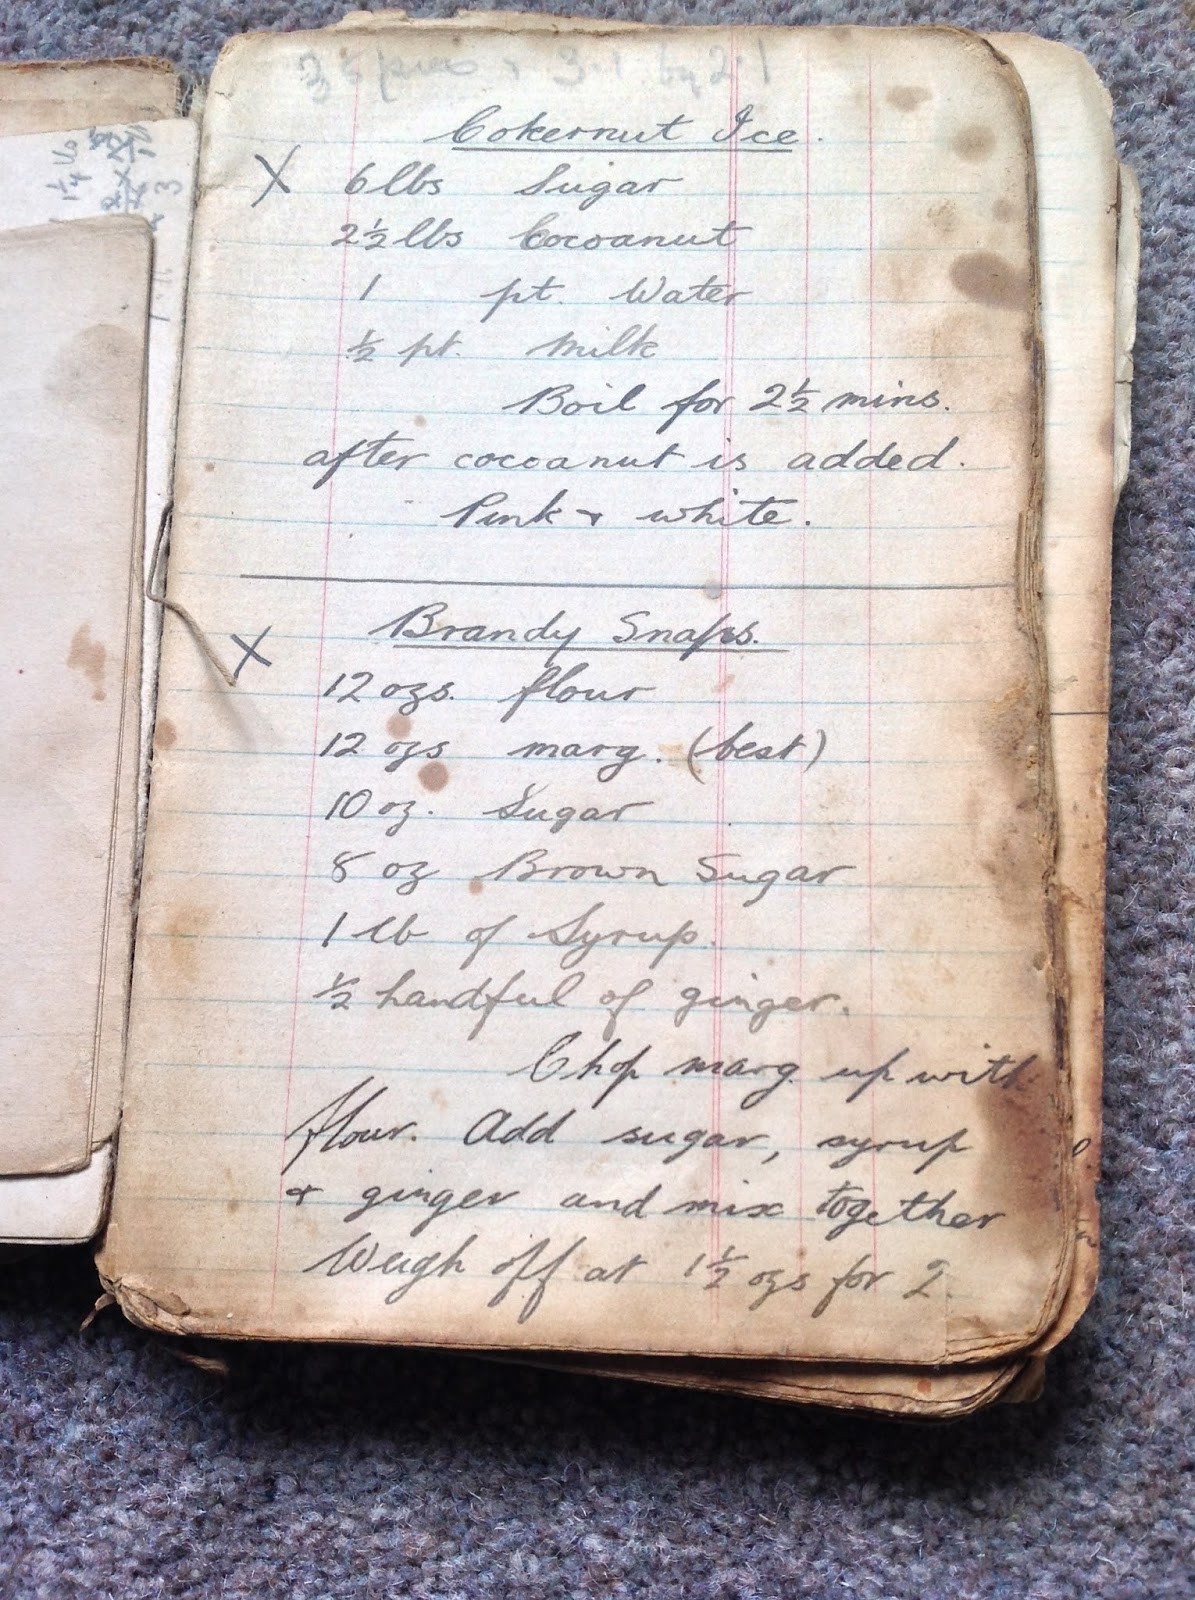 3·1 by 2·1
Cokernut Ice.
X 6 lbs Sugar
2½ lbs Cocoanut
1 pt. Water
½ pt. Milk
Boil for 2½ mins.
after cocoanut is added.
Pink + white.
Brandy Snaps.
X
12 ozs. flour
12 ozs marg. (best)
10 oz. Sugar
8 oz Brown Sugar
1 lb of Syrup.
½ handful of ginger.
Chop marg. up with
flour. Add sugar, syrup
+ ginger and mix together
Weigh off at 1½ ozs for 2.